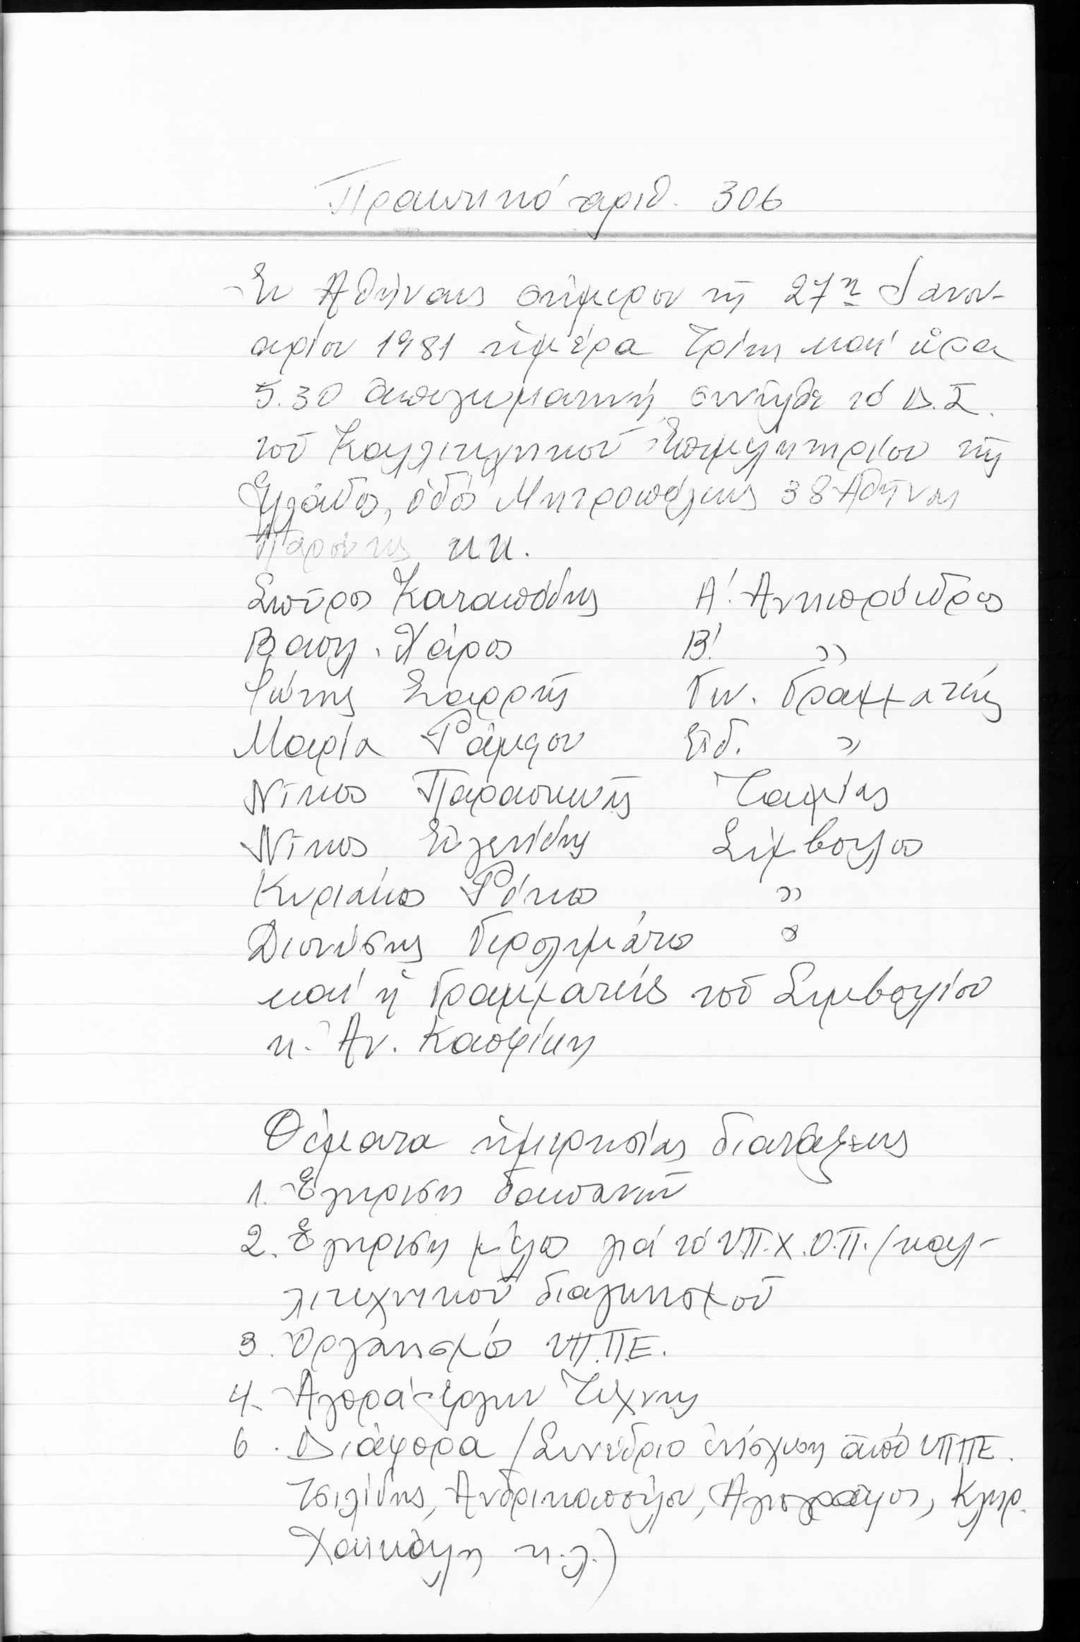 Πρακτικό ἀριθ. 306
Ἐν Ἀθήναις σήμερον τῇ 27η Ἰανου-
αρίου 1981 ἡμέρα Τρίτη καί ὥρα
5.30 ἀπογευματινή συνῆλθε τό Δ.Σ.
τοῦ Καλλιτεχνικοῦ Ἐπιμελητηρίου τῆς
Ἑλλάδος, ὁδός Μητροπόλεως 38 Ἀθῆναι
Παρόντες κ.κ.
Σπῦρος Καταπόδης Α! Ἀντιπρόεδρος
Βασιλ. Χάρος Β! ,,
Φώτης Σαρρῆς Γεν. Γραμματεύς
Μαρία Ράμφου Εἰδ. ,,
Νῖκος Παρασκευᾶς Ταμίας
Νῖκος Εὐγενίδης Σύμβουλος
Κυριάκος Ρόκος ,,
Διονύσης Γερολυμάτος ,,
καί ἡ Γραμματεύς τοῦ Συμβουλίου
κ. Ἀν. Κασφίκη
Θέματα ἡμερησίας διατάξεως
1. Ἔγκριση δαπανῶν
2. Ἔγκριση μέλος γιά τό ΥΠ.Χ.Ο.Π. (καλ-
λιτεχνικοῦ διαγωνισμοῦ
3. Ὀργανισμός ΥΠ.Π.Ε.
4. Ἀγορά ἔργων Τέχνης
6. Διάφορα (Συνέδριο ἐνίσχυση ἀπό ΥΠΠΕ.
Τσιλίδης, Ἀνδρικοπούλου, Ἁγιογράφοι, Κληρ.
κ.λ.)